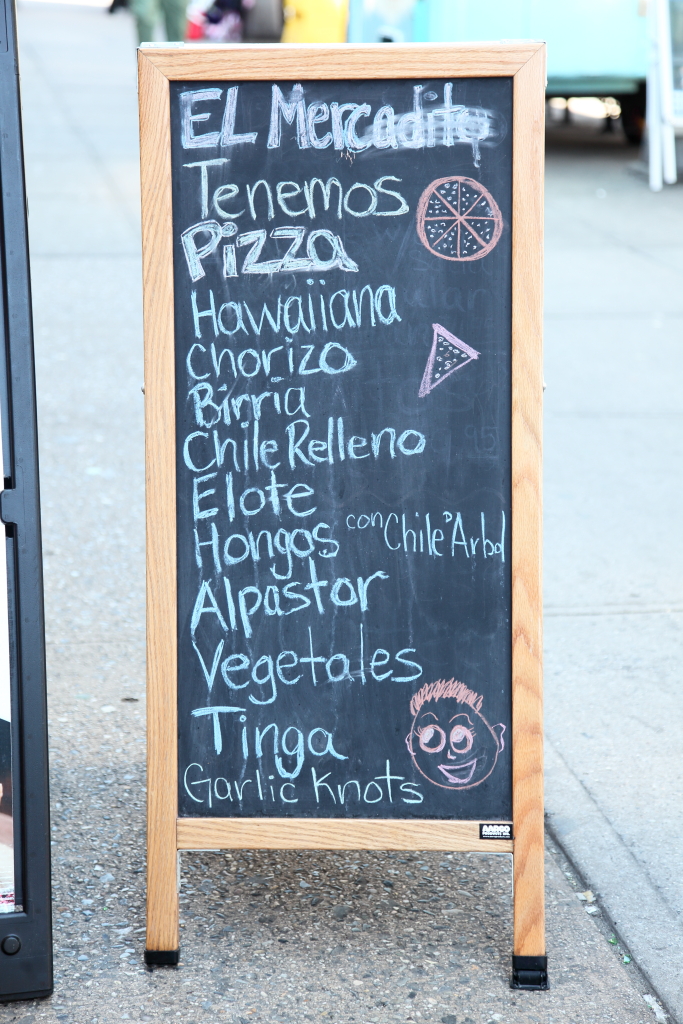 EL Mercadito
Tenemos
Pizza
Hawaiiana
Chorizo
Birria
Chile Relleno
Elote
Hongos con Chile D Arbol
Alpastor
Vegetales
Tinga
Garlic Knots
AARCO